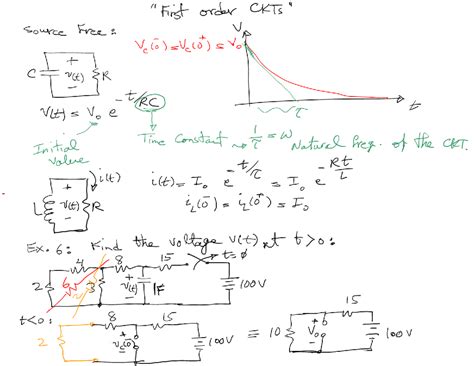 "First order CKTs"
Source Free:
V
Vc(0⁻) = Vc(0⁺) = V₀
C
+
v(t)
−
R
τ
t
V(t) = V₀ e^(-t/RC)
Initial Value
Time Constant → 1/τ = ω Natural freq. of the CKT.
i(t)
L
+
v(t)
−
R
i(t) = I₀ e^(-t/τ) = I₀ e^(-Rt/L)
iL(0⁻) = iL(0⁺) = I₀
Ex. 6: Find the voltage V(t) at t>0:
4
8
15
t=0
2
6
3
+
v(t)
−
1F
100V
t<0:
2
8
15
+
Vc(0⁻)
−
100V
≡
10
+
V₀
−
15
100V